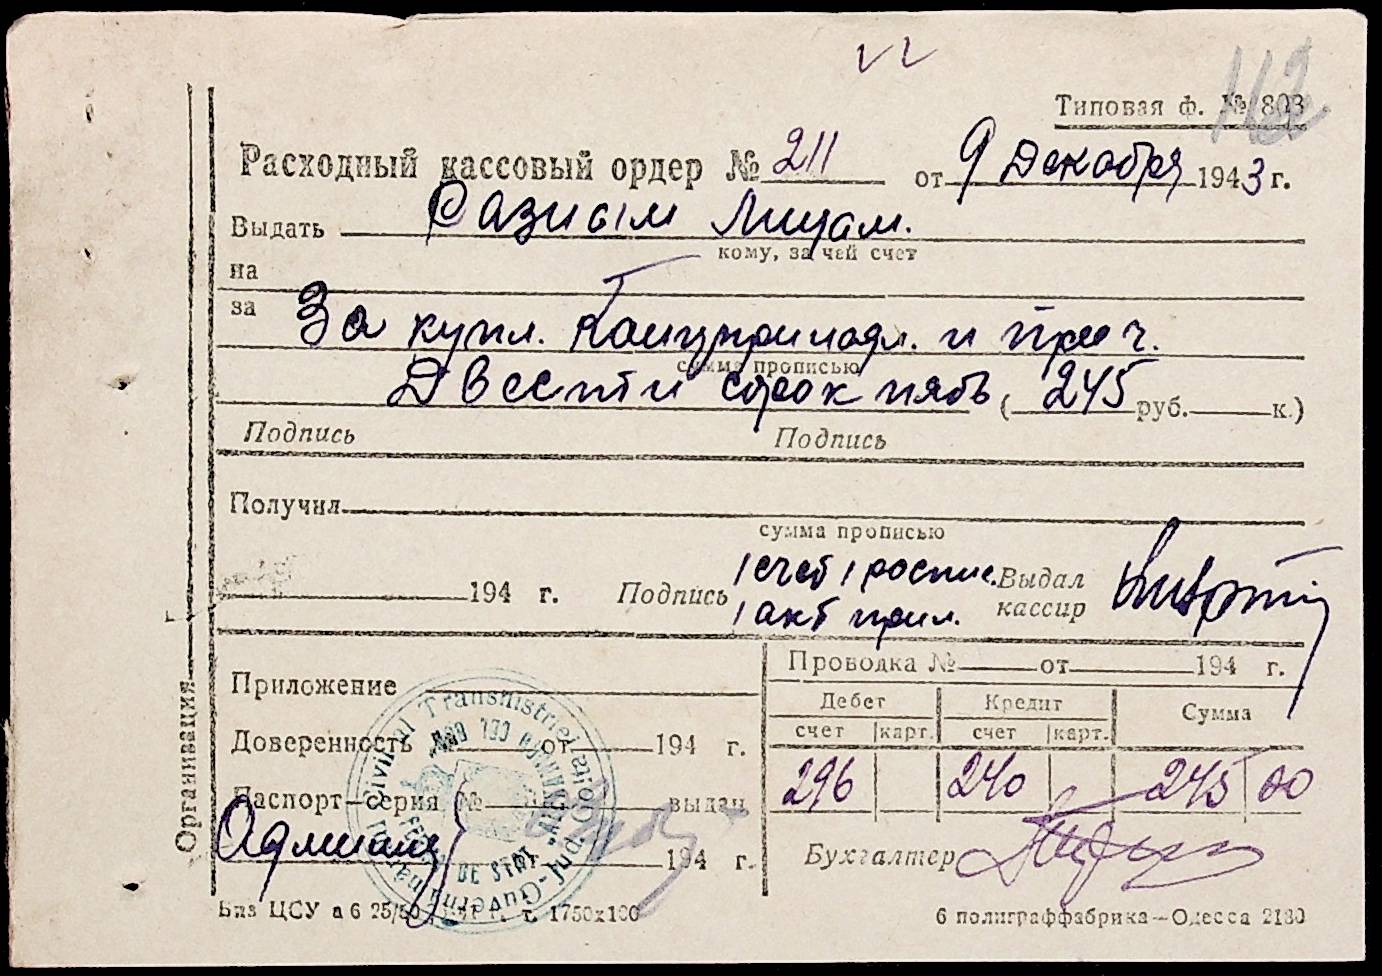 Типовая ф. № 803
Расходный кассовый ордер № 211 от 9 Декабря 1943 г.
Выдать Разным Лицам.
кому, за чей счет
на
за За купл. Канцпринадл. и проч.
сумма прописью
Двести сорок пять (245 руб. к.)
Подпись Подпись
Получил
сумма прописью
194 г. Подпись 1 счет 1 роспис. Выдал
1 акт прил. кассир
Проводка № от 194 г.
Приложение
Дебет Кредит Сумма
Доверенность № от 194 г.
счет карт. счет карт.
Паспорт—серия № выдан
296 240 245 00
194 г.
Бухгалтер
Организация
Биз ЦСУ а 6 25/50 т. 1750х100
6 полиграффабрика—Одесса 2180